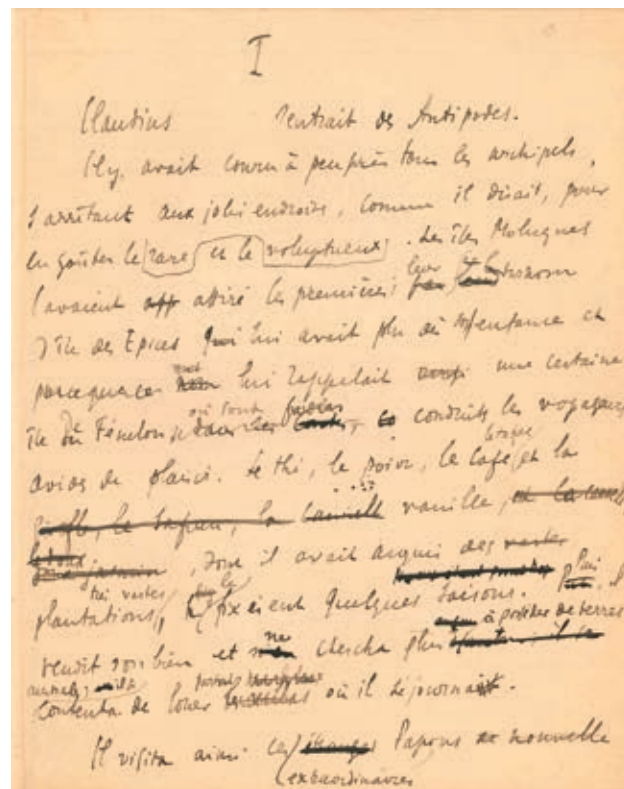 I
Claudius rentrait des Antipodes.
Il y avait couru à peu près tous les archipels,
s'arrêtant aux jolis endroits, comme il disait, pour
en goûter le rare et le voluptueux. Les îles Moluques
l'avaient attiré les premières; leur surnom
d'île des Epices lui avait plu dès son enfance et
parceque ce mot lui rappelait une certaine
île De Fénelon où sont conduits les voyageurs
avides de plaisir. Le thé, le poivre, le café, et la
vanille,
, dont il avait acquis des
très vastes
plantations, le fixèrent quelques saisons. Puis, il
vendit son bien et ne chercha plus à posséder de terres
contenta de louer où il séjournait.
Il visita ainsi ces Papous de nouvelle
extraordinaires